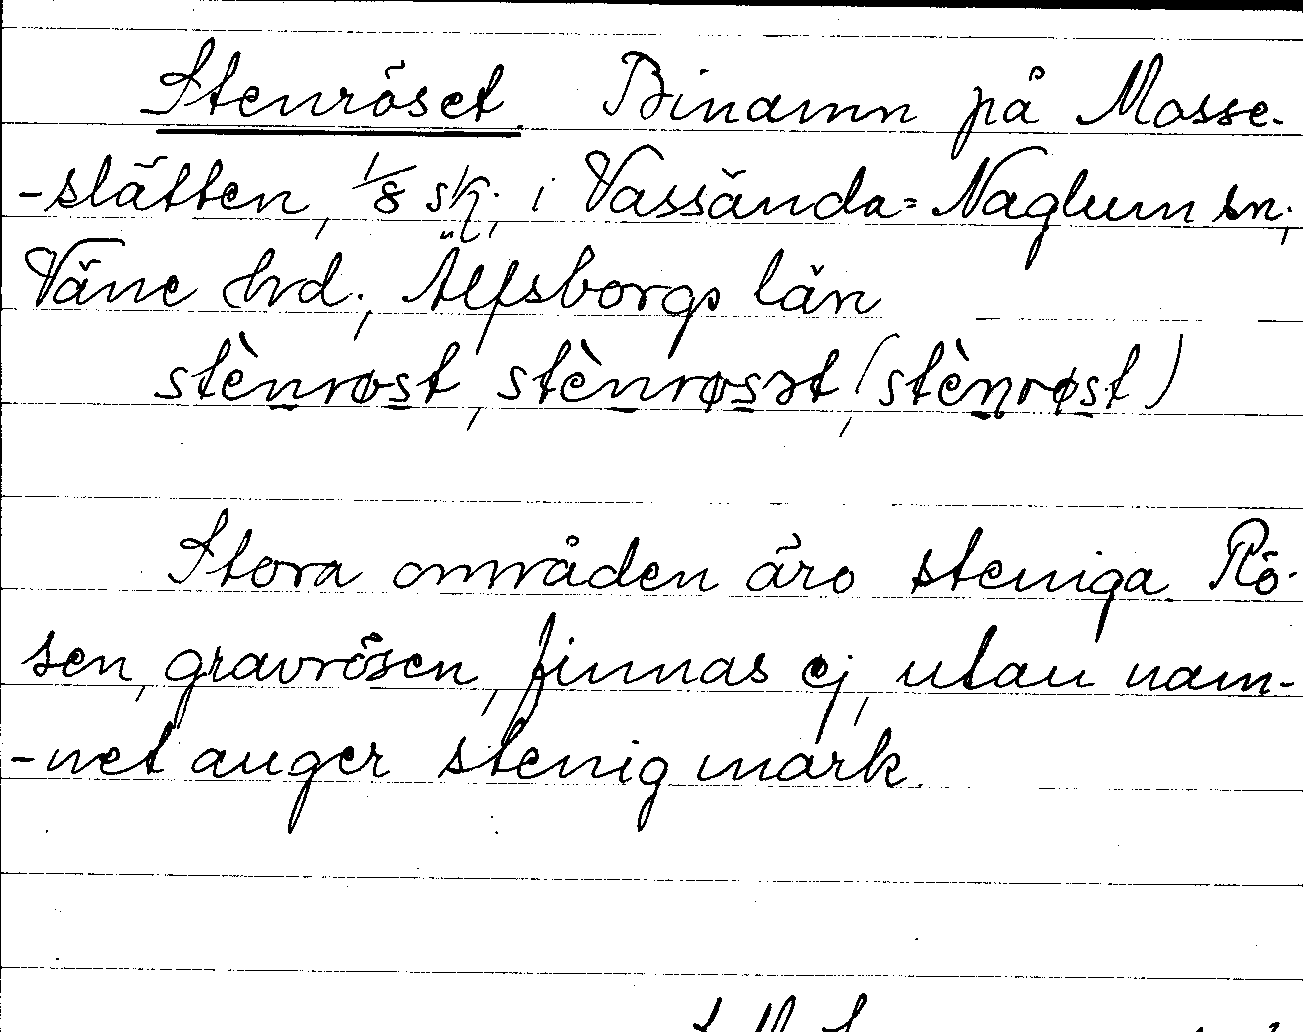 Stenröset Binamn på Mosse-
-slätten, 1/8 sk., i Vassända-Naglum sn.,
Väne hrd., Älfsborgs län
stènrøst, stènrøsət, (stènrøst)
Stora områden äro steniga. Rö-
sen, gravrösen, finnas ej, utan nam-
-net anger stenig mark.